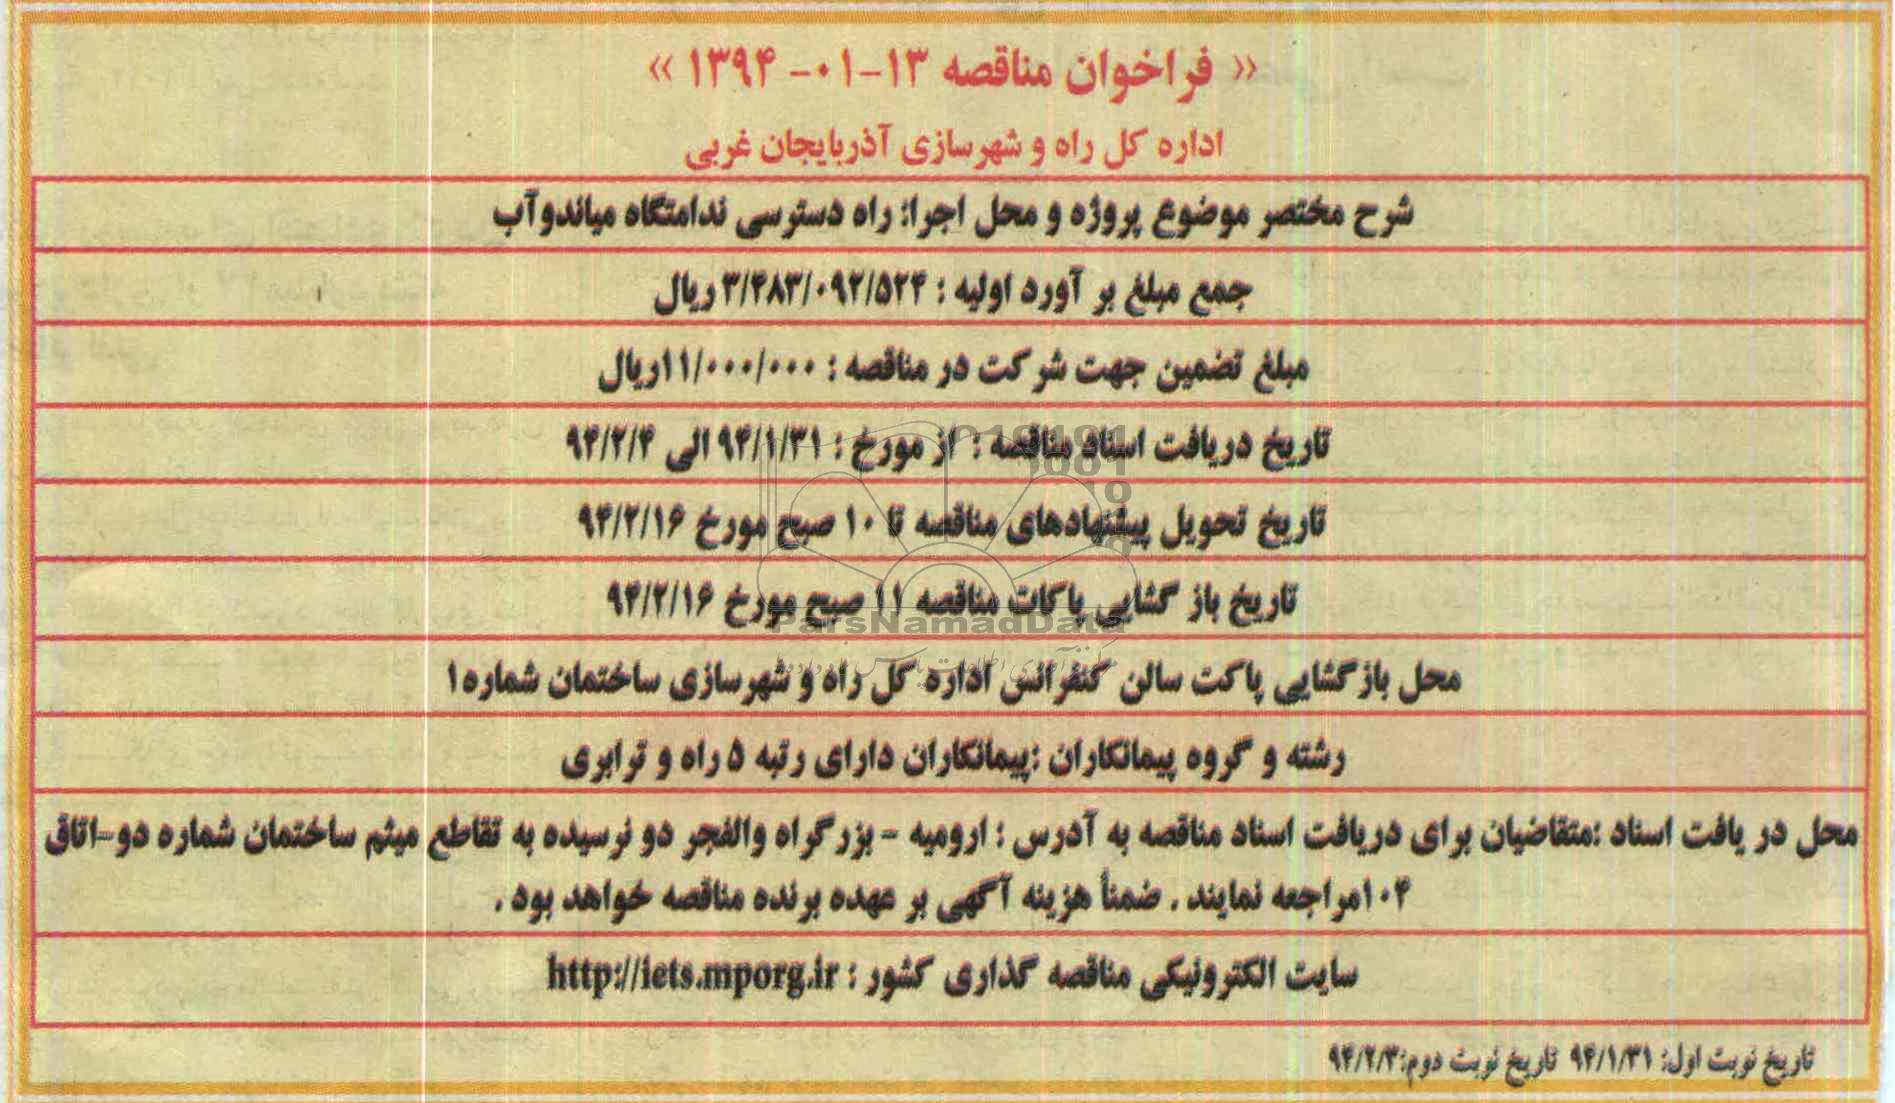 « فراخوان مناقصه ۱۳-۰۱- ۱۳۹۴ »
اداره کل راه و شهرسازی آذربایجان غربی
شرح مختصر موضوع پروژه و محل اجرا: راه دسترسی ندامتگاه میاندوآب
جمع مبلغ بر آورد اولیه : ۳/۴۸۳/۰۹۲/۵۲۴ ریال
مبلغ تضمین جهت شرکت در مناقصه : ۱۱/۰۰۰/۰۰۰ریال
تاریخ دریافت اسناد مناقصه : از مورخ : ۹۴/۱/۳۱ الی ۹۴/۲/۴
تاریخ تحویل پیشنهادهای مناقصه تا ۱۰ صبح مورخ ۹۴/۲/۱۶
تاریخ باز گشایی پاکات مناقصه ۱۱ صبح مورخ ۹۴/۲/۱۶
ParsNamadData
محل بازگشایی پاکت سالن کنفرانس اداره کل راه و شهرسازی ساختمان شماره۱
رشته و گروه پیمانکاران :پیمانکاران دارای رتبه ۵ راه و ترابری
محل در یافت اسناد :متقاضیان برای دریافت اسناد مناقصه به آدرس : ارومیه - بزرگراه والفجر دو نرسیده به تقاطع میثم ساختمان شماره دو-اتاق
۱۰۴مراجعه نمایند . ضمناً هزینه آگهی بر عهده برنده مناقصه خواهد بود .
سایت الکترونیکی مناقصه گذاری کشور : http://iets.mporg.ir
تاریخ نوبت اول: ۹۴/۱/۳۱ تاریخ نوبت دوم:۹۴/۲/۳